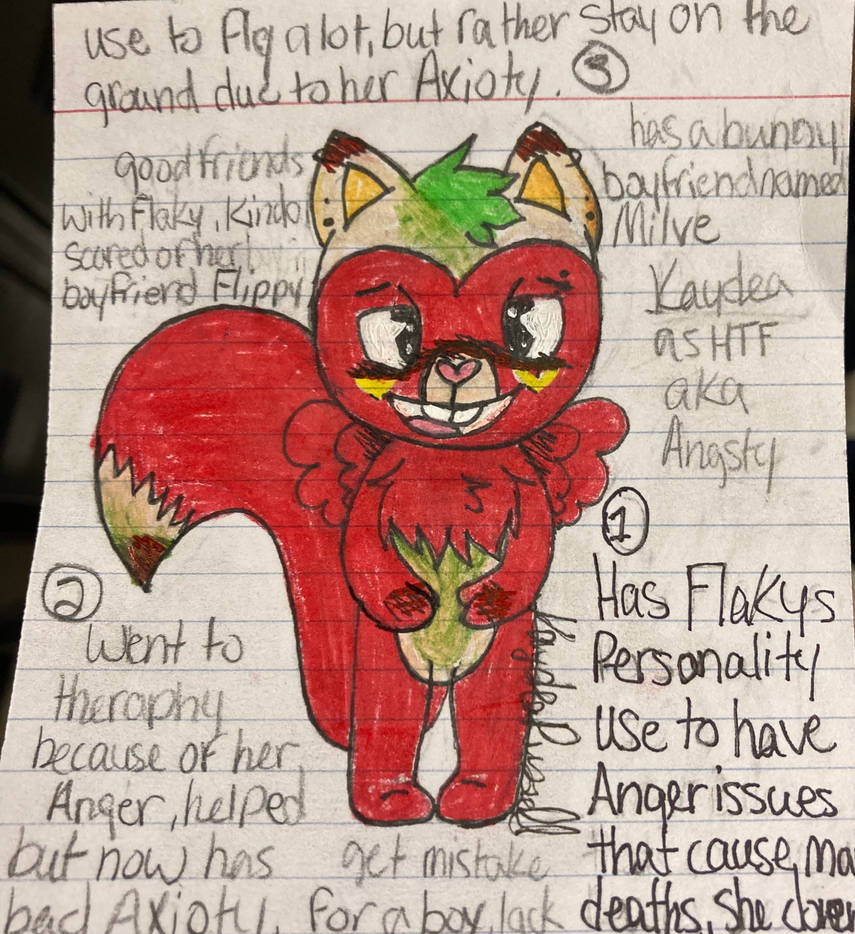 use to fly a lot, but rather stay on the
ground due to her Axioty. ③
good friends
with Flaky, Kinda
scared of her
boyfriend Flippy
has a bunny
boyfriend named
Milve
Kaydea
as HTF
aka
Angsty
①
Has Flakys
Personality
use to have
Anger issues
that cause, ma
deaths, she
②
Went to
theraphy
because of her
Anger, helped
but now has
bad Axioty.
get mistake
For a boy, lack